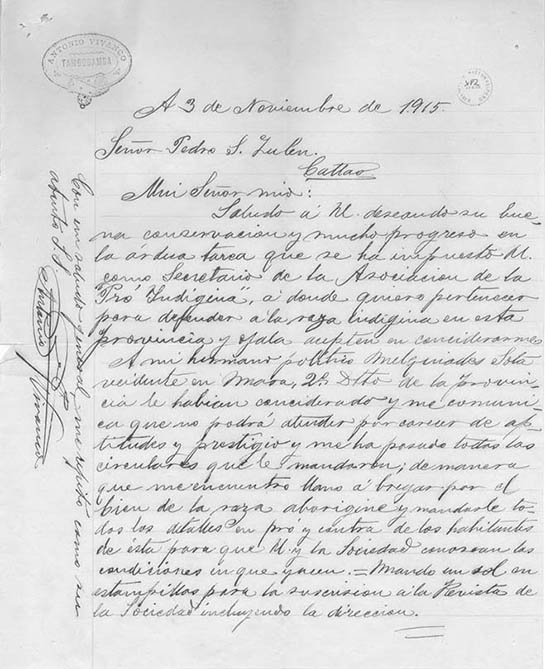 ANTONIO VIVANCO
TAMBOBAMBA
A 3 de Noviembre de 1915.
Señor Pedro S. Zulen.
Callao
Mui Señor mio:
Saludo á U. deseando su bue-
na conservacion y mucho progreso en
la árdua tarea que se ha impuesto U.
como Secretario de la Asociacion de la
"Pró Indígina", a donde quiero pertenecer
para defender a la raza indígina en esta
provincia y ojala acepten en considerarme
A mi hermano politico Melquiades Sota
recidente en Mara, 2º. Dtto de la provin-
cia le habian conciderado y me comuni-
ca que no podrá atender por carecer de ap-
titudes y prestigio y me ha pasado todas las
circulares que le mandaron; de manera
que me encuentro llano á bregar por el
bien de la raza aborigine y mandarle to-
dos los detalles en pró y contra de los habitantes
de ésta para que U. y la Sociedad conoscan las
condiciones in que yacen. = Mando un sol en
estampillas para la suscrision a la Revista de
la Sociedad incluyendo la direccion.
Con un saludo me repito como su
atento S. S.
Antonio Vivanco